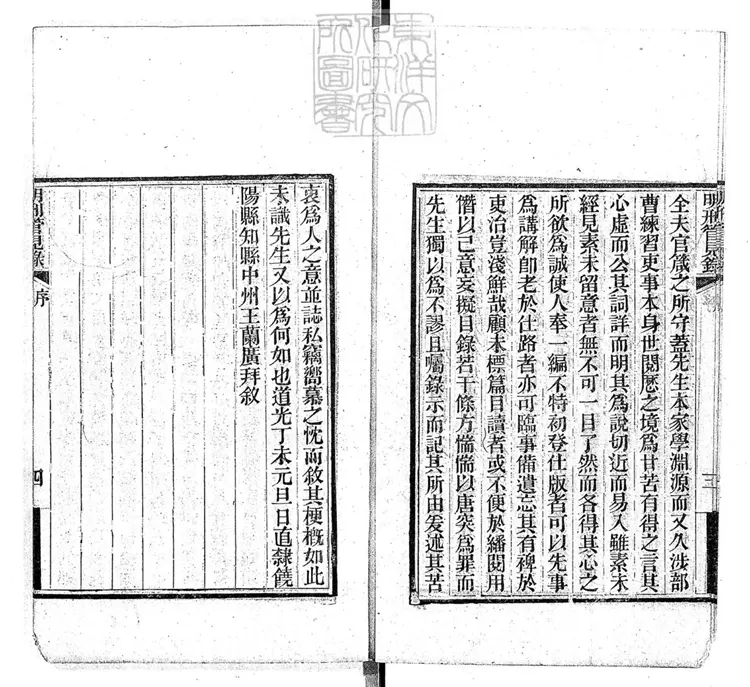 東洋文
化研究
所圖書
明刑管見錄
三
全夫官箴之所守蓋先生本家學淵源而又久涉部
曹練習吏事本身世閱歷之境為甘苦有得之言其
心虛而公其詞詳而明其為說切近而易入雖素未
經見素未留意者無不可一目了然而各得其心之
所欲為誠使人奉一編不特初登仕版者可以先事
為講解卽老於仕路者亦可臨事備遺忘其有裨於
吏治豈淺鮮哉顧未標篇目讀者或不便於繙閱用
僭以己意妄擬目錄若干條方惴惴以唐突為罪而
先生獨以為不謬且囑錄示而記其所由爰述其苦
衷為人之意並誌私竊嚮慕之忱而敘其梗概如此
未識先生又以為何如也道光丁未元旦日直隸饒
陽縣知縣中州王蘭廣拜敘
明刑管見錄
序
四